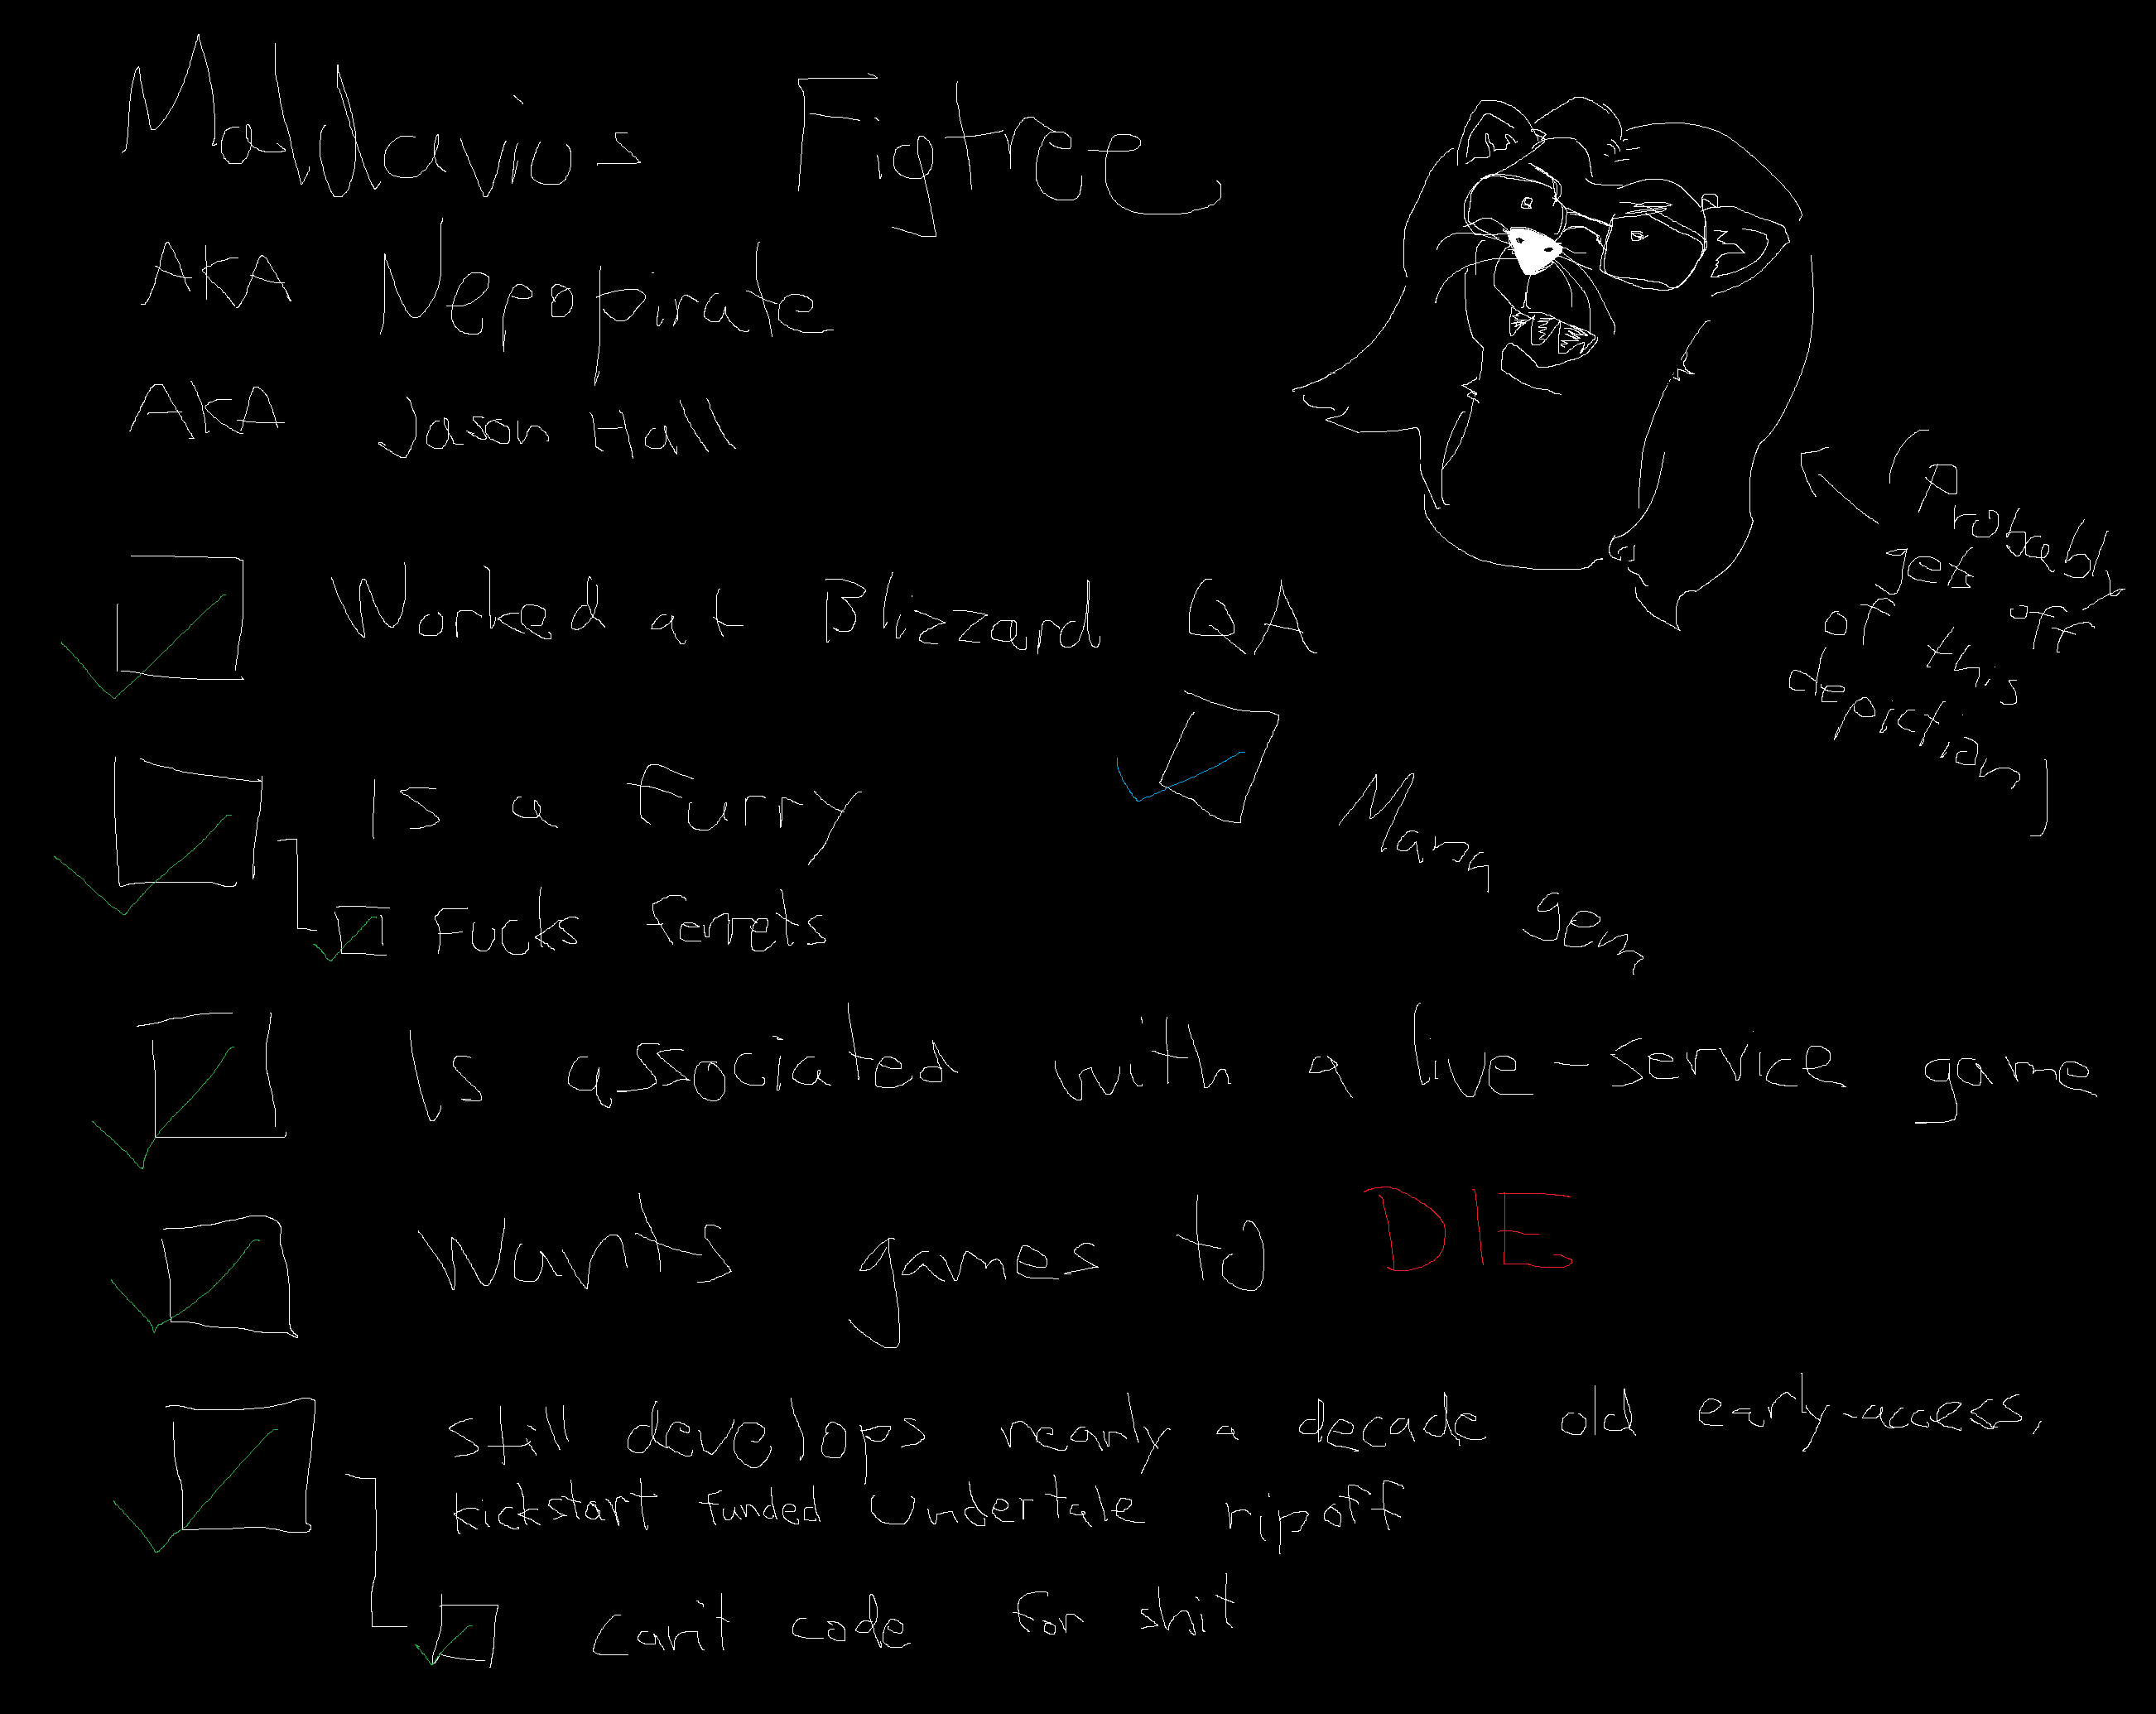 Maldavius Figtree
AKA Nepopirate
AKA Jason Hall
(Probably
gets off
of this
depiction)
Worked at Blizzard QA
Mana gem
Is a Furry
Fucks ferrets
Is associated with a live-service game
Wants games to DIE
Still develops nearly a decade old early-access,
kickstart funded Undertale ripoff
Can't code for shit